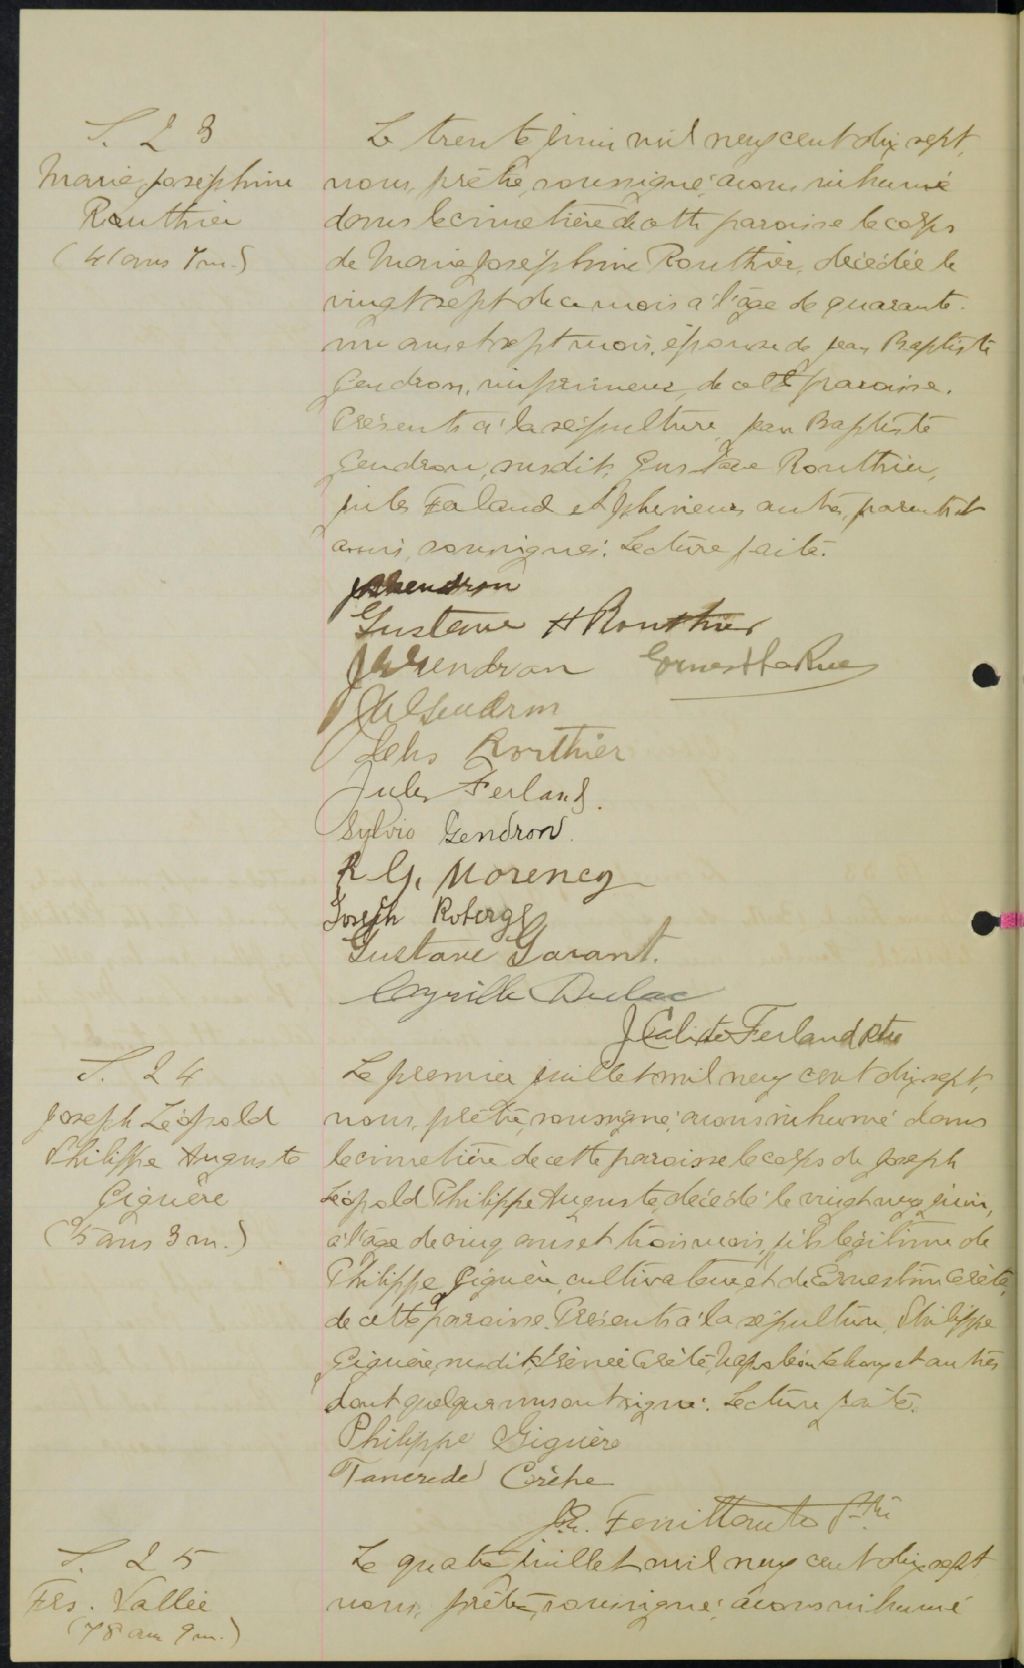 S. 23
Marie Joséphine
Routhier
(41 ans 7 m.)
Le trente juin mil neuf cent dix sept,
nous, prêtre, soussigné, avons inhumé
dans le cimetière de cette paroisse le corps
de Marie Joséphine Routhier, décédée le
vingt sept de ce mois à l'âge de quarante
un ans et sept mois, épouse de Jean Baptiste
Gendron, imprimeur, de cette paroisse.
Présents à la sépulture, Jean Baptiste
Gendron, susdit, Gustave Routhier,
Jules Faland et plusieurs autres, parents et
amis, soussignés. Lecture faite.
Gustave H Routhier
Gendron Ernest LaRue
Gendron
Routhier
Jules Ferland.
Sylvio Gendron.
R G. Morency
Joseph Roberge
Gustave Garant.
Cyrille Dulac
J Calixte Ferland Ptre
S. 24
Joseph Léopold
Philippe Auguste
Giguère
(5 ans 3 m.)
Le premier juillet mil neuf cent dix sept,
nous, prêtre, soussigné, avons inhumé dans
le cimetière de cette paroisse le corps de Joseph
Léopold Philippe Auguste, décédé le vingt neuf juin,
à l'âge de cinq ans et trois mois, fils légitime de
Philippe Giguère, cultivateur et de Ernestine Crète,
de cette paroisse. Présents à la sépulture, Philippe
Giguère, susdit, Irénée Crète, Napoléon et autres
dont quelques uns ont signé. Lecture faite.
Philippe Giguère
Tancrede Crète
Ptre
S. 25
Frs. Vallée
(78 ans 9 m.)
Le quatre juillet mil neuf cent dix sept
nous, prêtre, soussigné, avons inhumé